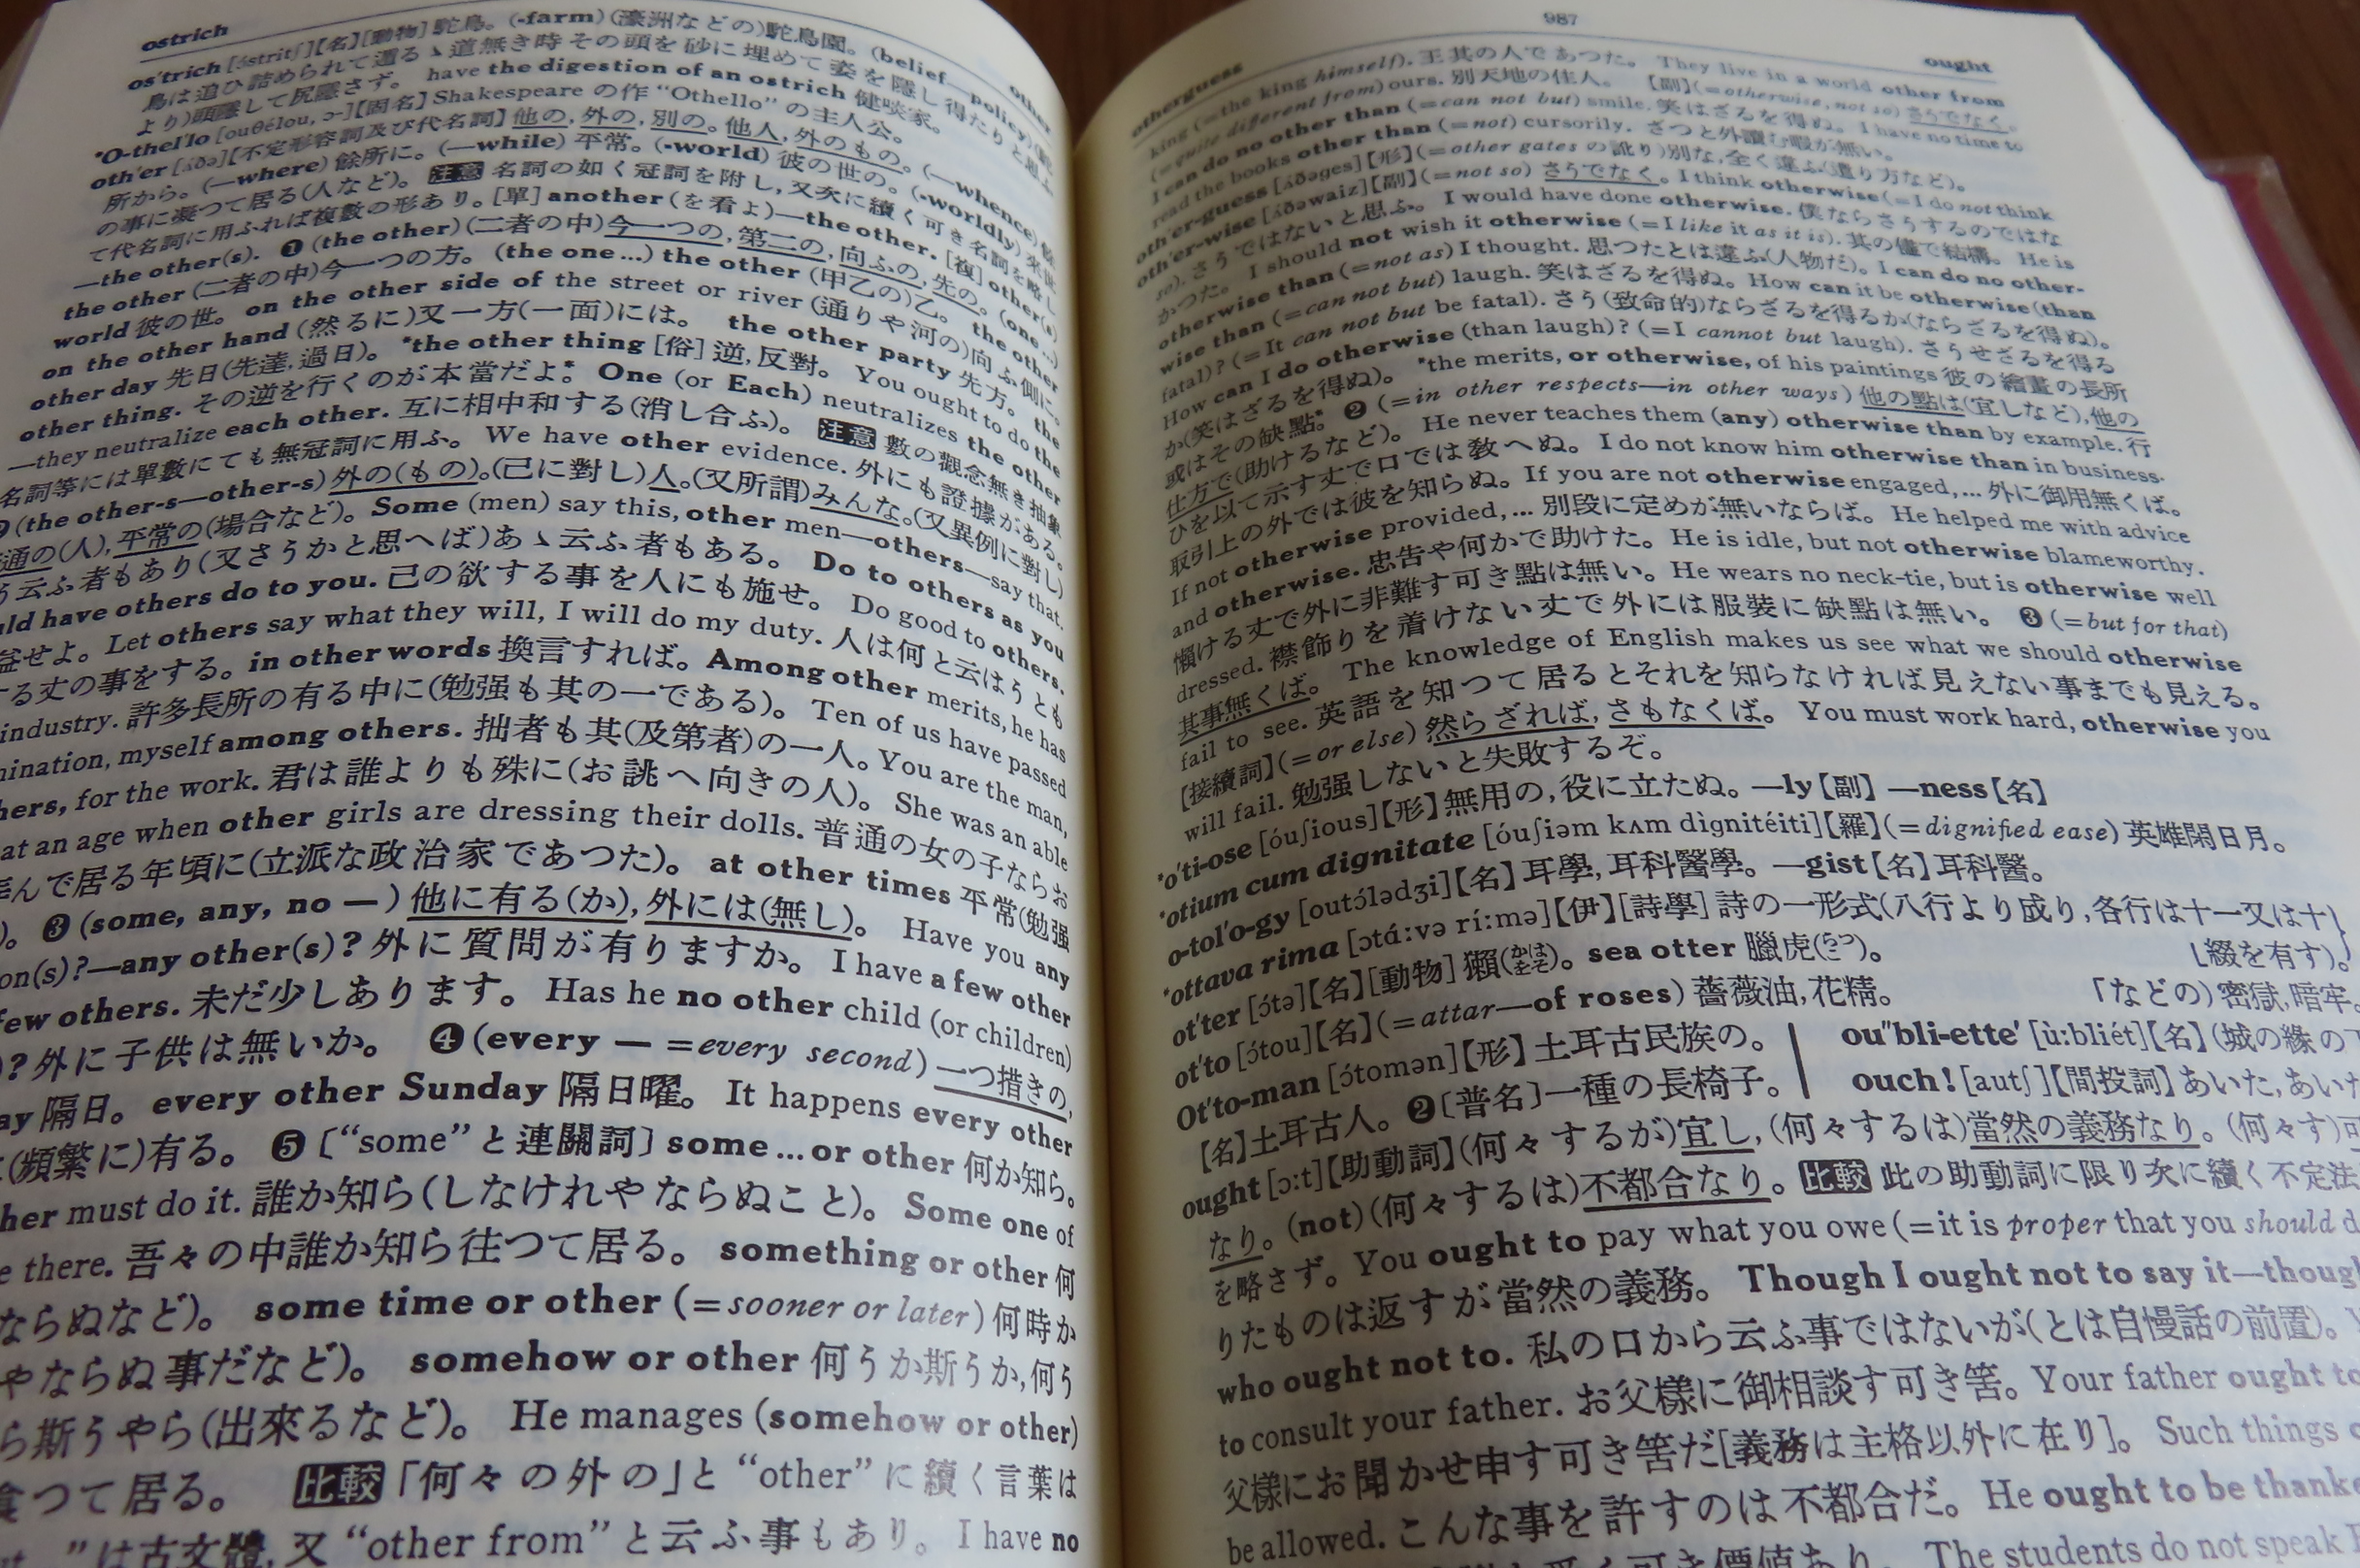 ostrich
other
os'trich [ɔ́stritʃ]【名】[動物] 駝鳥。(-farm) (濠洲などの)駝鳥園。(belief—policy)
鳥は追ひ詰められて遁るゝ道無き時その頭を砂に埋めて姿を隱し得たりと思ふ
より)頭隱して尻隱さず。 have the digestion of an ostrich 健啖家。
*O-thel'lo [ouθélou, ɔ-]【固名】Shakespeare の作 “Othello” の主人公。
oth'er [ʌ́ðə]【不定形容詞及び代名詞】他の, 外の, 別の。他人, 外のもの。(—whence)
所から。(—where) 餘所に。(—while) 平常。(-world) 彼の世の。(-worldly)
の事に凝つて居る(人など)。 注意 名詞の如く冠詞を附し, 又次に續く可き名詞を略し
て代名詞に用ふれば複數の形あり。[單] another (を看よ)—the other. [複] other(s)
—the other(s). ❶ (the other) (二者の中)今一つの, 第二の, 向ふの, 先の。(one ...)
the other (二者の中)今一つの方。 (the one ...) the other (甲乙の)乙。 the other
world 彼の世。 on the other side of the street or river (通りや河の)向ふ側に。
on the other hand (然るに)又一方(一面)には。 the other party 先方。 the
other day 先日(先達, 過日)。 *the other thing [俗] 逆, 反對。 You ought to do the
other thing. その逆を行くのが本當だよ* One (or Each) neutralizes the other
—they neutralize each other. 互に相中和する(消し合ふ)。 注意 數の觀念無き抽象
名詞等には單數にても無冠詞に用ふ。 We have other evidence. 外にも證據がある。
(the other-s—other-s) 外の(もの)。(己に對し)人。(又所謂)みんな。(又異例に對し)
通の(人), 平常の(場合など)。 Some (men) say this, other men—others—say that.
云ふ者もあり(又さうかと思へば)あゝ云ふ者もある。 Do to others as you
have others do to you. 己の欲する事を人にも施せ。 Do good to others.
益せよ。 Let others say what they will, I will do my duty. 人は何と云はうとも
する丈の事をする。 in other words 換言すれば。 Among other merits, he has
industry. 許多長所の有る中に(勉强も其の一である)。 Ten of us have passed
myself among others. 拙者も其(及第者)の一人。 You are the man,
for the work. 君は誰よりも殊に(お誂へ向きの人)。 She was an able
at an age when other girls are dressing their dolls. 普通の女の子ならお
んで居る年頃に(立派な政治家であつた)。 at other times 平常(勉强
)。 ❸ (some, any, no —) 他に有る(か), 外には(無し)。 Have you any
any other(s)? 外に質問が有りますか。 I have a few other
few others. 未だ少しあります。 Has he no other child (or children)
? 外に子供は無いか。 ❹ (every — =every second) 一つ措きの,
隔日。 every other Sunday 隔日曜。 It happens every other
(頻繁に)有る。 ❺ [“some” と連關詞] some ... or other 何か知ら。
must do it. 誰か知ら(しなけれやならぬこと)。 Some one of
there. 吾々の中誰か知ら往つて居る。 something or other 何
ならぬなど)。 some time or other (=sooner or later) 何時か
やならぬ事だなど)。 somehow or other 何うか斯うか, 何う
ら斯うやら(出來るなど)。 He manages (somehow or other)
食つて居る。 比較「何々の外の」と “other” に續く言葉は
” は古文體, 又 “other from” と云ふ事もあり。 I have no
otherguess
987
ought
king (=the king himself). 王其の人であつた。 They live in a world other from
(=quite different from) ours. 別天地の住人。 【副】(=otherwise, not so) さうでなく。
I can do no other than (=can not but) smile. 笑はざるを得ぬ。 I have no time to
read the books other than (=not) cursorily. ざつと外讀む暇が無い。
oth'er-guess [ʌ́ðəges]【形】(=other gates の訛り)別な, 全く違ふ(遣り方など)。
oth'er-wise [ʌ́ðəwaiz]【副】(=not so) さうでなく。 I think otherwise (=I do not think
so). さうではないと思ふ。 I would have done otherwise. 僕ならさうするのではな
かつた。 I should not wish it otherwise (=I like it as it is). 其の儘で結構。 He is
otherwise than (=not as) I thought. 思つたとは違ふ(人物だ)。 I can do no other-
wise than (=can not but) laugh. 笑はざるを得ぬ。 How can it be otherwise (than
fatal)? (=It can not but be fatal). さう(致命的)ならざるを得るか(ならざるを得ぬ)。
How can I do otherwise (than laugh)? (=I cannot but laugh). さうせざるを得る
か(笑はざるを得ぬ)。 *the merits, or otherwise, of his paintings 彼の繪畫の長所
或はその缺點* ❷ (=in other respects—in other ways) 他の點は(宜しなど), 他の
仕方で(助けるなど)。 He never teaches them (any) otherwise than by example. 行
ひを以て示す丈で口では敎へぬ。 I do not know him otherwise than in business.
取引上の外では彼を知らぬ。 If you are not otherwise engaged, ... 外に御用無くば。
If not otherwise provided, ... 別段に定めが無いならば。 He helped me with advice
and otherwise. 忠告や何かで助けた。 He is idle, but not otherwise blameworthy.
懶ける丈で外に非難す可き點は無い。 He wears no neck-tie, but is otherwise well
dressed. 襟飾りを着けない丈で外には服裝に缺點は無い。 ❸ (=but for that)
其事無くば。 The knowledge of English makes us see what we should otherwise
fail to see. 英語を知つて居るとそれを知らなければ見えない事までも見える。
【接續詞】(=or else) 然らざれば, さもなくば。 You must work hard, otherwise you
will fail. 勉强しないと失敗するぞ。
*o'ti-ose [óuʃious]【形】無用の, 役に立たぬ。 —ly【副】 —ness【名】
*otium cum dignitate [óuʃiəm kʌm dìgnitéiti]【羅】(=dignified ease) 英雄閑日月。
o-tol'o-gy [outɔ́lədʒi]【名】耳學, 耳科醫學。 —gist【名】耳科醫。
*ottava rima [ɔtá:və rí:mə]【伊】[詩學] 詩の一形式(八行より成り, 各行は十一又は十
綴を有す)。
ot'ter [ɔ́tə]【名】[動物] 獺(かはをそ)。 sea otter 臘虎(らつこ)。
ot'to [ɔ́tou]【名】(=attar—of roses) 薔薇油, 花精。
「などの) 密獄, 暗牢。
Ot'to-man [ɔ́tomən]【形】土耳古民族の。
【名】土耳古人。 ❷ [普名] 一種の長椅子。
ou''bli-ette' [ù:bliét]【名】(城の緣の下
ouch! [autʃ]【間投詞】あいた, あいた
ought [ɔ:t]【助動詞】(何々するが)宜し, (何々するは)當然の義務なり。(何々す)可
なり。 (not) (何々するは)不都合なり。 比較 此の助動詞に限り次に續く不定法
を略さず。 You ought to pay what you owe (=it is proper that you should
りたものは返すが當然の義務。 Though I ought not to say it—though
who ought not to. 私の口から云ふ事ではないが(とは自慢話の前置)。
to consult your father. お父樣に御相談す可き筈。 Your father ought to
父樣にお聞かせ申す可き筈だ[義務は主格以外に在り]。 Such things
be allowed. こんな事を許すのは不都合だ。 He ought to be
可き價値あり。 The students do not speak